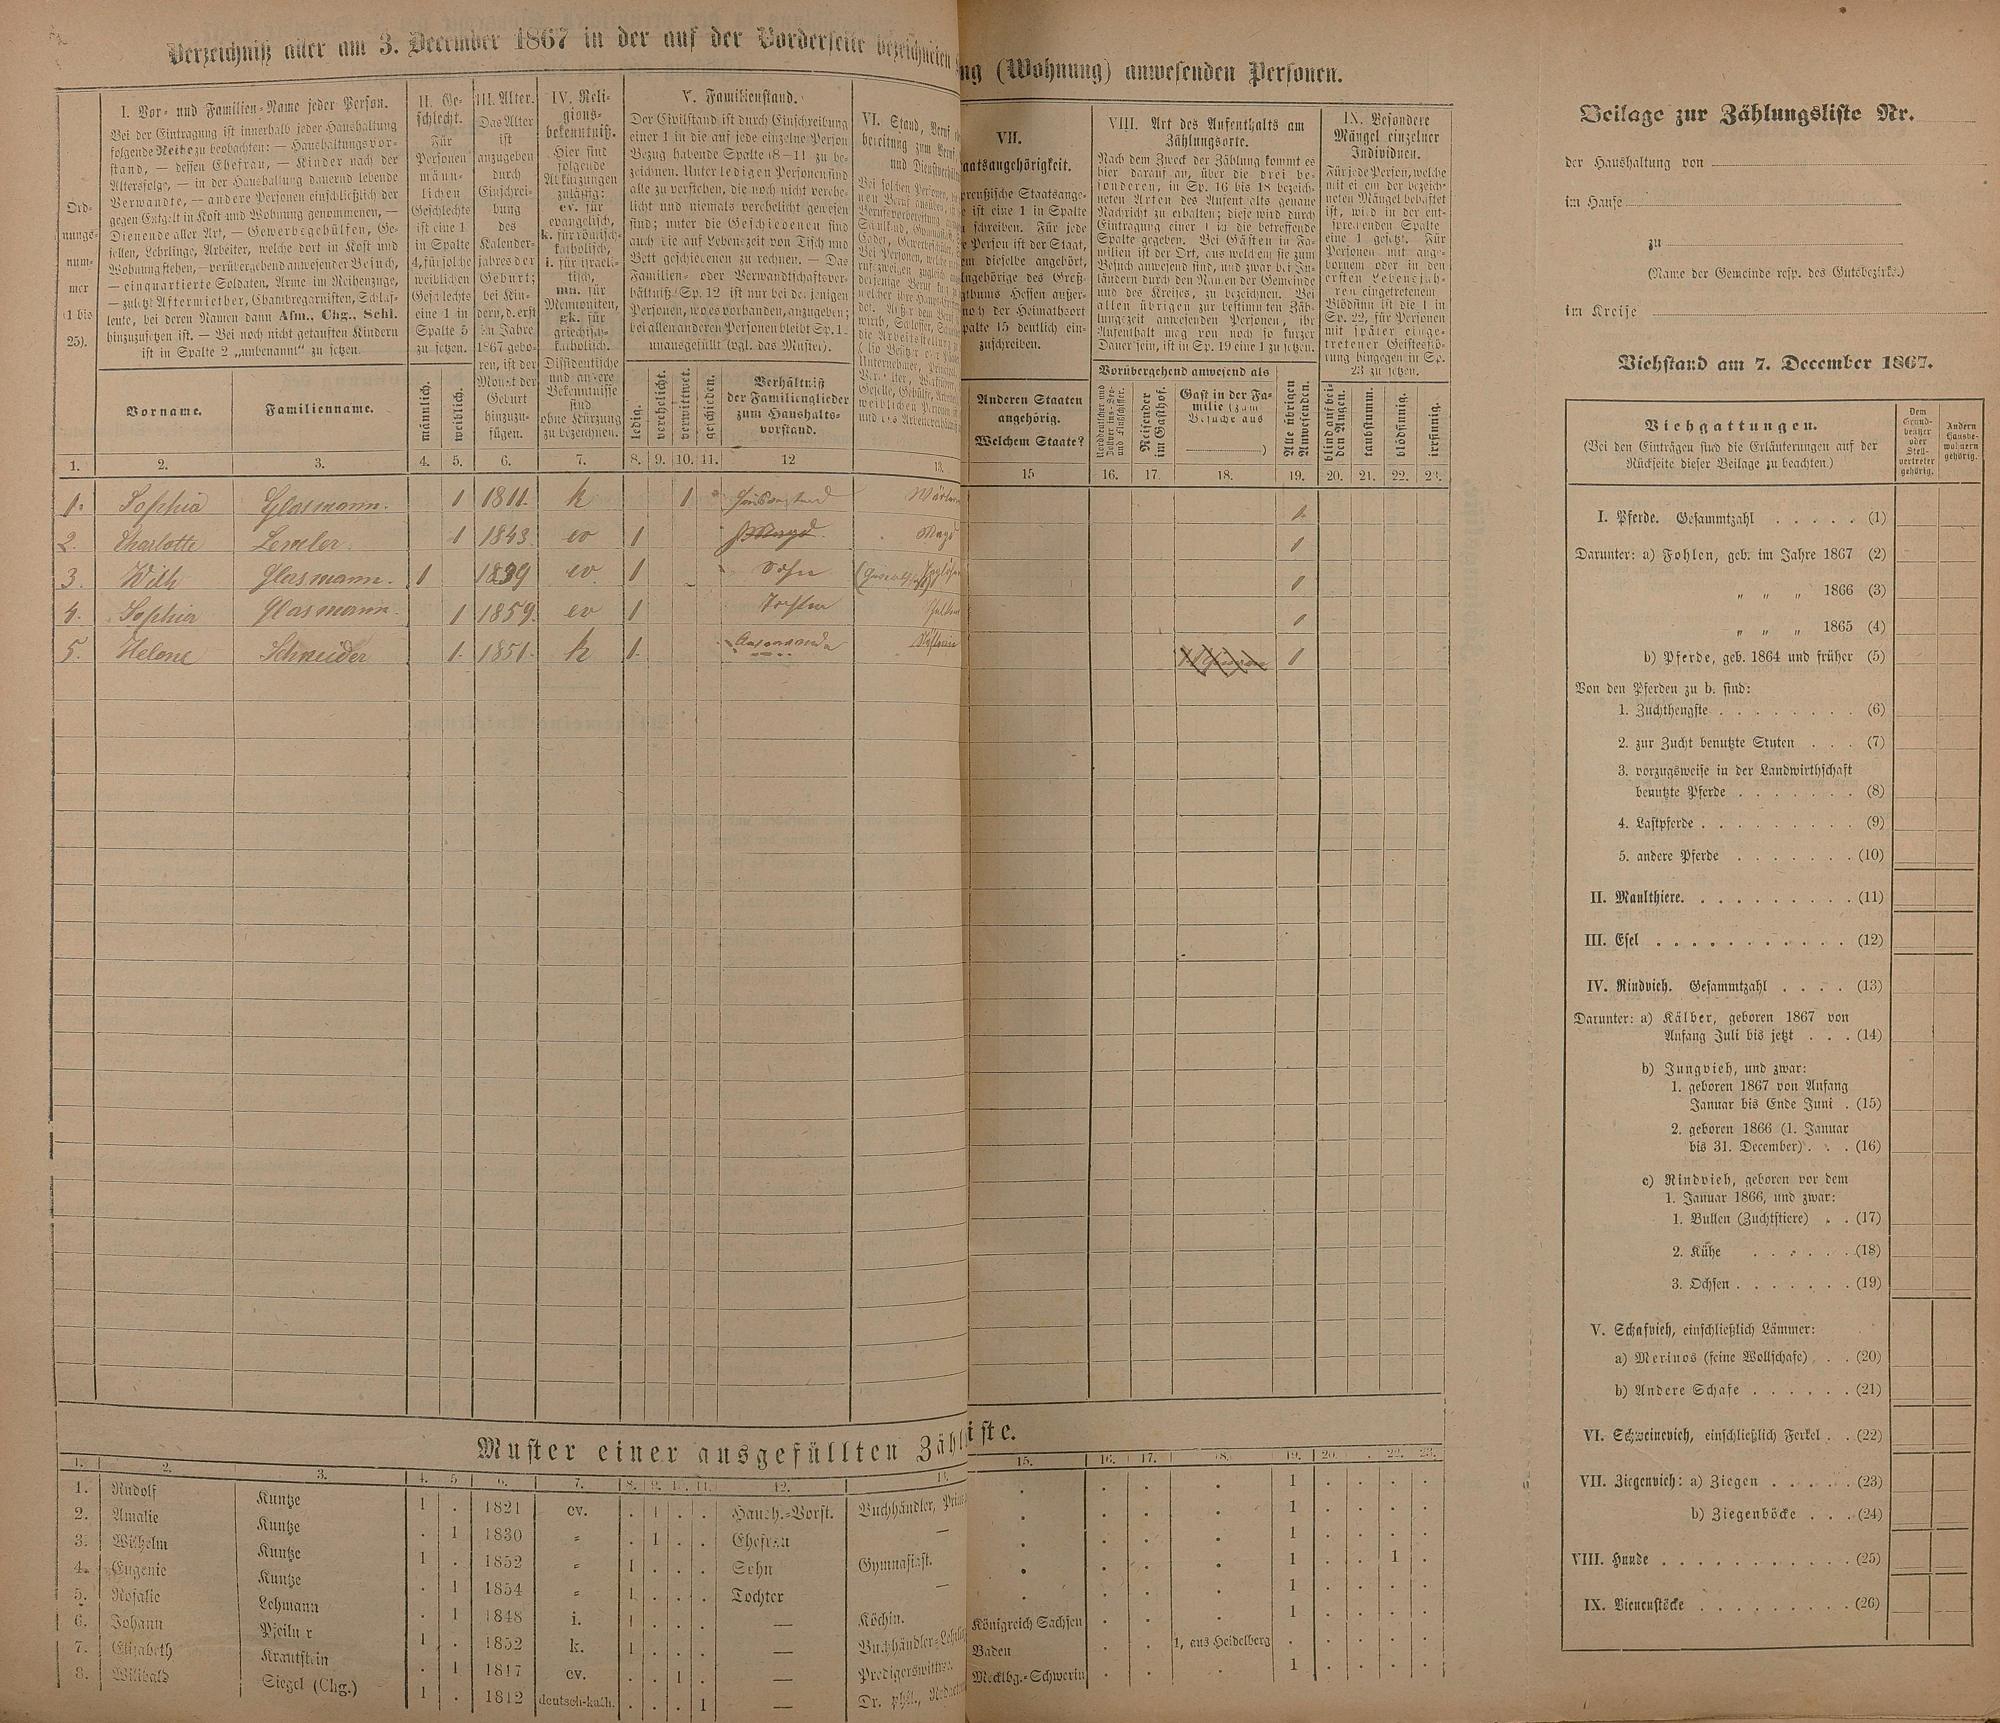 Verzeichniß aller am 3. December 1867 in der auf der Vorderseite bezeichneten
ng (Wohnung) anwesenden Personen.
Ord-
nungs-
num-
mer
(1 bis
25).
I. Vor- und Familien-Name jeder Person.
Bei der Eintragung ist innerhalb jeder Haushaltung
folgende Reihe zu beobachten: — Haushaltungsvor-
stand, — dessen Ehefrau, — Kinder nach der
Altersfolge, — in der Haushaltung dauernd lebende
Verwandte, — andere Personen einschließlich der
gegen Entgelt in Kost und Wohnung genommenen, —
Dienende aller Art, — Gewerbegehülfen, Ge-
sellen, Lehrlinge, Arbeiter, welche dort in Kost und
Wohnung stehen, — vorübergehend anwesender Besuch,
— einquartierte Soldaten, Arme im Reihenzuge,
— zuletzt Aftermiether, Chambregarnisten, Schlaf-
leute, bei deren Namen dann Afm., Chg., Schl.
hinzuzusetzen ist. — Bei noch nicht getauften Kindern
ist in Spalte 2 „unbenannt“ zu setzen.
Vorname.
Familienname.
II. Ge-
schlecht.
Für
Personen
männ-
lichen
Geschlechts
ist eine 1
in Spalte
4, für solche
weiblichen
Geschlechts
eine 1 in
Spalte 5
zu setzen.
männlich.
weiblich.
III. Alter.
Das Alter
ist
anzugeben
durch
Einschrei-
bung
des
Kalender-
jahres der
Geburt;
bei Kin-
dern, d. erst
im Jahre
1867 gebo-
ren, ist der
Monat der
Geburt
hinzuzu-
fügen.
IV. Reli-
gions-
bekenntniß.
Hier sind
folgende
Abkürzungen
zulässig:
ev. für
evangelisch,
k. für römisch-
katholisch,
i. für israeli-
tisch,
mn. für
Mennoniten,
gk. für
griechisch-
katholisch.
Dissidentische
und andere
Bekenntnisse
sind
ohne Kürzung
zu bezeichnen.
V. Familienstand.
Der Civilstand ist durch Einschreibung
einer 1 in die auf jede einzelne Person
Bezug habende Spalte (8–11) zu be-
zeichnen. Unter Ledigen Personen sind
alle zu verstehen, die noch nicht verehe-
licht und niemals verehelicht gewesen
sind; unter die Geschiedenen sind
auch die auf Lebenszeit von Tisch und
Bett geschiedenen zu rechnen. — Das
Familien- oder Verwandtschaftsver-
hältniß Sp. 12 ist nur bei denjenigen
Personen, wo es vorhanden, anzugeben;
bei allen anderen Personen bleibt Sp. 1.
unausgefüllt (vgl. das Muster).
ledig.
verehelicht.
verwittwet.
geschieden.
Verhältniß
der Familienglieder
zum Haushalts-
vorstand.
VI. Stand, Beruf
VII.
aatsangehörigkeit.
preußische Staatsange-
ist eine 1 in Spalte
schreiben. Für jede
Person ist der Staat,
em dieselbe angehört,
ngehörige des Groß-
gthums Hessen außer-
noch der Heimathsort
palte 15 deutlich ein-
zuschreiben.
Anderen Staaten
angehörig.
Welchem Staate?
VIII. Art des Aufenthalts am
Zählungsorte.
Nach dem Zweck der Zählung kommt es
hier darauf an, über die drei be-
sonderen, in Sp. 16 bis 18 bezeich-
neten Arten des Aufenthalts genaue
Nachricht zu erhalten; diese wird durch
Eintragung einer 1 in die betreffende
Spalte gegeben. Bei Gästen in Fa-
milien ist der Ort, aus welchem sie zum
Besuch anwesend sind, und zwar bei In-
ländern durch den Namen der Gemeinde
und des Kreises, zu bezeichnen. Bei
allen übrigen zur bestimmten Zäh-
lungszeit anwesenden Personen, ihr
Aufenthalt mag von noch so kurzer
Dauer sein, ist in Sp. 19 eine 1 zu setzen.
Vorübergehend anwesend als
Reisender im Gasthof.
Gast in der Fa-
milie (zum
Besuche aus
)
Alle übrigen Anwesenden.
IX. Besondere
Mängel einzelner
Individuen.
Für jede Person, welche
mit einem der bezeich-
neten Mängel behaftet
ist, wird in der ent-
sprechenden Spalte
eine 1 gesetzt. Für
Personen mit ange-
bornem oder in den
ersten Lebensjah-
ren eingetretenem
Blödsinn ist die 1 in
Sp. 22, für Personen
mit später einge-
tretener Geistesstö-
rung hingegen in Sp.
23 zu setzen.
blind auf bei-
den Augen.
taubstumm.
blödsinnig.
irrsinnig.
1. 2. 3. 4. 5. 6. 7. 8. 9. 10. 11. 12 13. 15 16. 17. 18. 19. 20. 21. 22. 23.
1. Sophia Glasmann. 1 1811. k 1 1
2. Charlotte 1 1843. ev 1 Magd 1
3. Wilh Glasmann. 1 1839 ev. 1 Sohn 1
4. Sophia Glasmann. 1 1859. ev 1 Tochter 1
5. Helene Schneider 1 1851. k 1 1
Muster einer ausgefüllten Zähl
iste.
1. 2. 3. 4. 5 6. 7. 8. 9. 10. 11. 12. 13. 15. 16. 17. 18. 19. 20. 22. 23.
1. Rudolf Kuntze 1 . 1821 ev. . 1 . . Haush.-Vorst. Buchhändler, . . . . 1 . . . .
2. Amalie Kuntze . 1 1830 " . 1 . . Ehefrau — . . . . 1 . . . .
3. Wilhelm Kuntze 1 . 1852 " 1 . . . Sohn Gymnasiast. . . . . 1 . . . .
4. Eugenie Kuntze . 1 1854 " 1 . . . Tochter — . . . . 1 . . 1 .
5. Rosalie Lehmann . 1 1848 i. 1 . . . — Köchin. . . . . 1 . . . .
6. Johann 1 . 1852 k. 1 . . . — Buchhändler-Lehrling Königreich Sachsen . . . 1 . . . .
7. Elisabeth Krautstein . 1 1817 ev. . . 1 . — Predigerswittwe. Baden . . 1, aus Heidelberg . . . . .
8. Wilibald Siegel (Chg.) 1 . 1812 deutsch-kath. . . . 1 — Dr. phil., Mecklbg.-Schwerin . . . 1 . . . .
Beilage zur Zählungsliste Nr.
der Haushaltung von
im Hause
zu
(Name der Gemeinde resp. des Gutsbezirks.)
im Kreise
Viehstand am 7. December 1867.
Viehgattungen.
(Bei den Einträgen sind die Erläuterungen auf der
Rückseite dieser Beilage zu beachten.)
Dem
Grund-
besitzer
oder
Stell-
vertreter
gehörig.
Andern
Hausbe-
wohnern
gehörig.
I. Pferde. Gesammtzahl . . . . . (1)
Darunter: a) Fohlen, geb. im Jahre 1867 (2)
„ „ „ 1866 (3)
„ „ „ 1865 (4)
b) Pferde, geb. 1864 und früher (5)
Von den Pferden zu b. sind:
1. Zuchthengste . . . . . . . . (6)
2. zur Zucht benutzte Stuten . . . (7)
3. vorzugsweise in der Landwirthschaft
benutzte Pferde . . . . . . . (8)
4. Lastpferde . . . . . . . . . (9)
5. andere Pferde . . . . . . . (10)
II. Maulthiere. . . . . . . . . . (11)
III. Esel . . . . . . . . . . . (12)
IV. Rindvieh. Gesammtzahl . . . . (13)
Darunter: a) Kälber, geboren 1867 von
Anfang Juli bis jetzt . . . (14)
b) Jungvieh, und zwar:
1. geboren 1867 von Anfang
Januar bis Ende Juni . (15)
2. geboren 1866 (1. Januar
bis 31. December) . . . (16)
c) Rindvieh, geboren vor dem
1. Januar 1866, und zwar:
1. Bullen (Zuchtstiere) . . (17)
2. Kühe . . . . . . (18)
3. Ochsen . . . . . . . (19)
V. Schafvieh, einschließlich Lämmer:
a) Merinos (feine Wollschafe) . . (20)
b) Andere Schafe . . . . . . (21)
VI. Schweinevieh, einschließlich Ferkel . . (22)
VII. Ziegenvieh: a) Ziegen . . . . . (23)
b) Ziegenböcke . . . (24)
VIII. Hunde . . . . . . . . . . . (25)
IX. Bienenstöcke . . . . . . . . . (26)